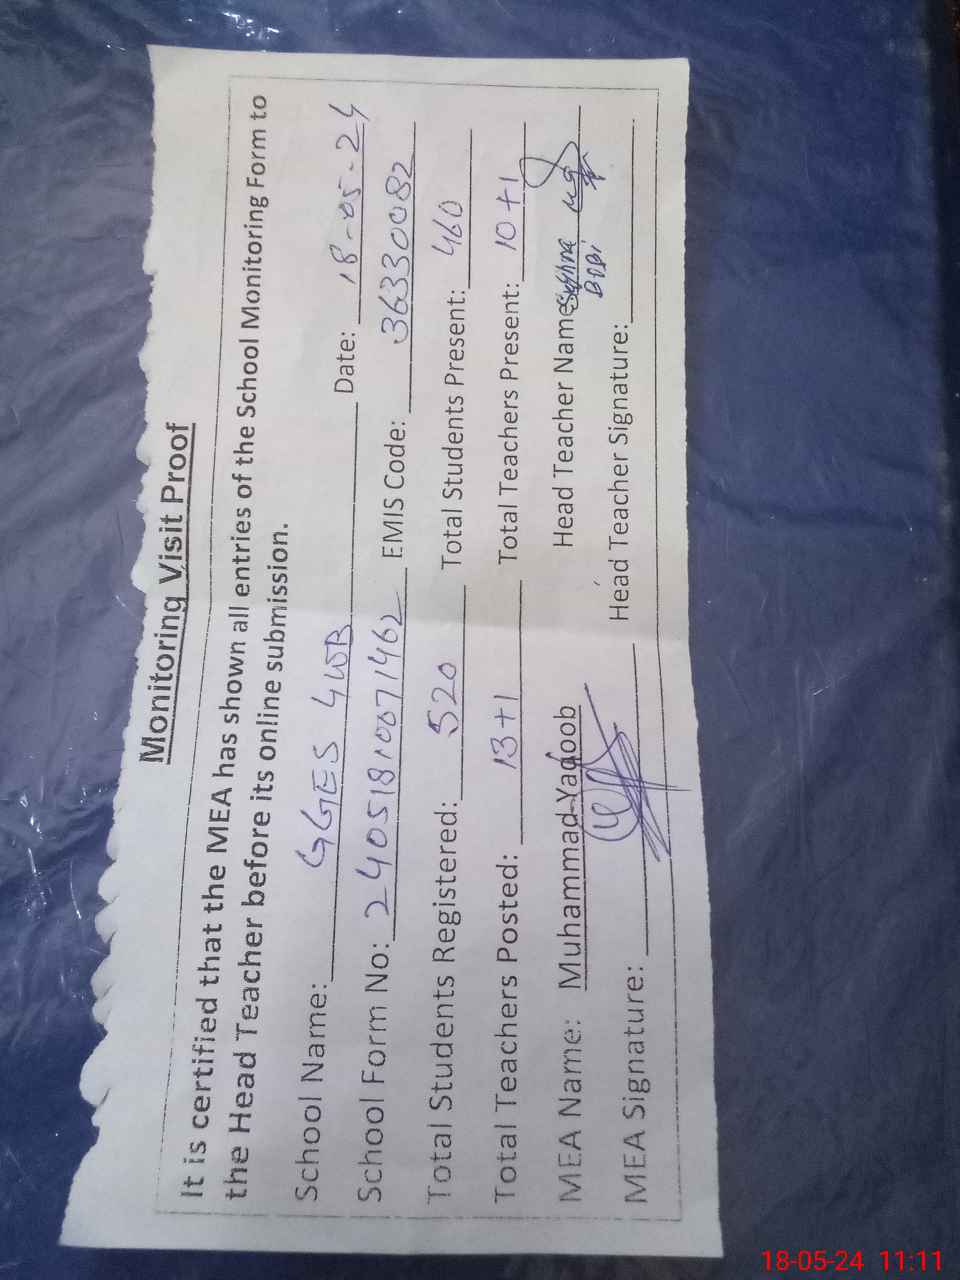 Monitoring Visit Proof
It is certified that the MEA has shown all entries of the School Monitoring Form to
the Head Teacher before its online submission.
School Name: GGES 4WB Date: 18-05-24
School Form No: 24051810071462 EMIS Code: 36330082
Total Students Registered: 520 Total Students Present: 460
Total Teachers Posted: 13+1 Total Teachers Present: 10+1
MEA Name: Muhammad Yaqoob Head Teacher Name: BiBi
MEA Signature: Head Teacher Signature:
18-05-24 11:11